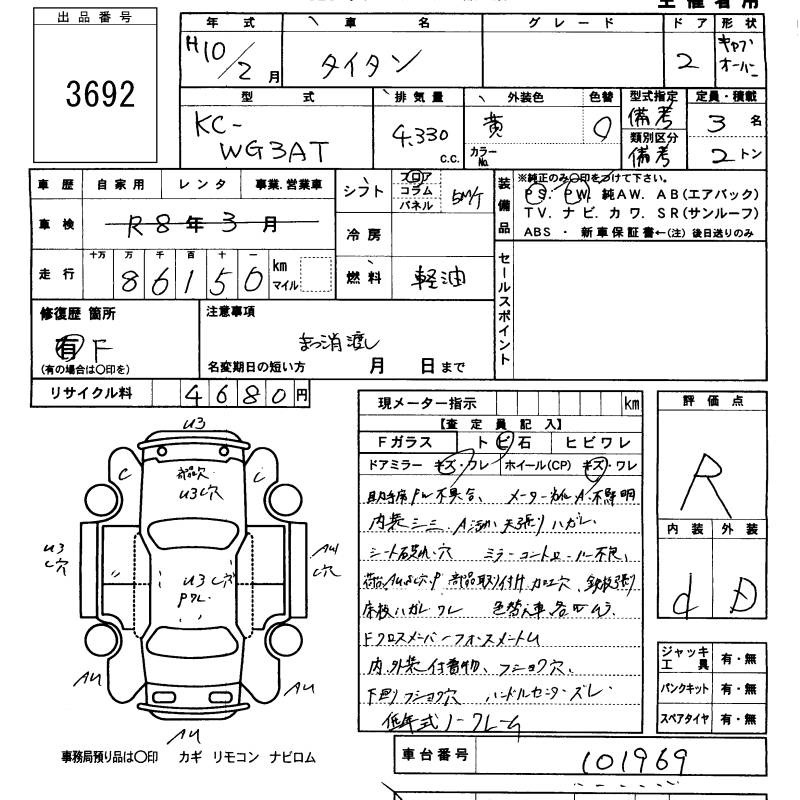 出品番号
3692
年式 車名 グレード ドア 形状
H10/2月 タイタン 2 キャブオーバー
型式 排気量 外装色 色替 型式指定 定員・積載
KC-WG3AT 4.330 c.c. 黄 カラーNo. 備考 類別区分 備考 3名 2トン
車歴 自家用 レンタ 事業.営業車
車検 R8年3月
走行 十万 万 千 百 十 一 km マイル
86150
シフト フロア コラム パネル 5M/T
冷房
燃料 軽油
装備品
※純正のみ○印をつけて下さい。
PS. PW. 純AW. AB(エアバック)
TV. ナビ. カワ. SR(サンルーフ)
ABS ・ 新車保証書←(注) 後日送りのみ
セールスポイント
修復歴 箇所
有 F
(有の場合は○印を)
注意事項
まっ消渡し
名変期日の短い方 月 日まで
リサイクル料 4680円
現メーター指示 km
【査定員記入】
Fガラス トビ石 ヒビワレ
ドアミラー キズ・ワレ ホイール(CP) キズ・ワレ
助手席PW不具合、
内装シミ、 天張リハガレ
シート 穴 ミラーコントローラー不良、
部品取り付 加工穴
床板ハガレワレ 色替え車
Fクロスメンバー
内外装付着物、フショク穴、
下回リフショク穴 ハンドルセンターズレ
低年式ノークレーム
評価点
R
内装 外装
d D
ジャッキ工具 有・無
パンクキット 有・無
スペアタイヤ 有・無
車台番号 101969
U3
C
部品欠
U3穴
U3
穴
AU
穴
U3穴
Pワレ
AU
AU
AU
事務局預り品は○印 カギ リモコン ナビロム